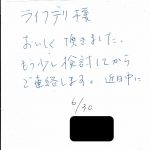 ライフデリ様
おいしく頂きました。
もう少し検討してから
ご連絡します。近日中に
6/30